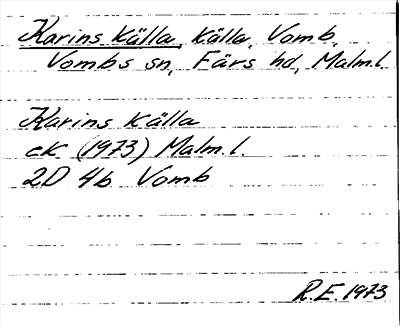 Karins källa, källa, Vomb,
Vombs sn, Färs hd, Malm.l.
Karins källa
ek (1973) Malm.l.
2D 4b Vomb
R.E. 1973